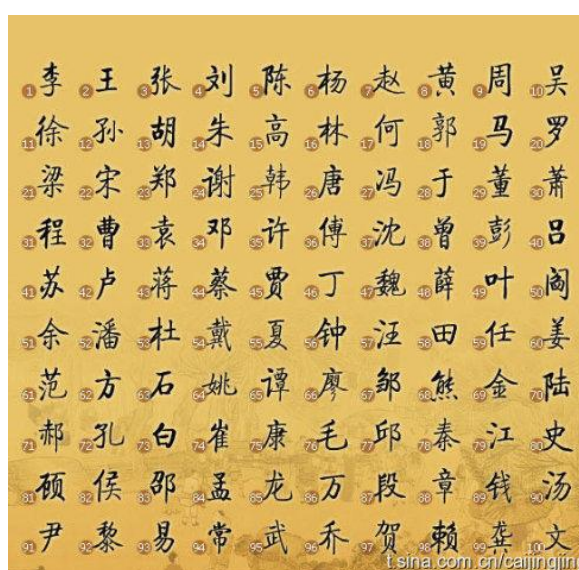 1李 2王 3张 4刘 5陈 6杨 7赵 8黄 9周 10吴
11徐 12孙 13胡 14朱 15高 16林 17何 18郭 19马 20罗
21梁 22宋 23郑 24谢 25韩 26唐 27冯 28于 29董 30萧
31程 32曹 33袁 34邓 35许 36傅 37沈 38曾 39彭 40吕
41苏 42卢 43蒋 44蔡 45贾 46丁 47魏 48薛 49叶 50阎
51余 52潘 53杜 54戴 55夏 56钟 57汪 58田 59任 60姜
61范 62方 63石 64姚 65谭 66廖 67邹 68熊 69金 70陆
71郝 72孔 73白 74崔 75康 76毛 77邱 78秦 79江 80史
81顾 82侯 83邵 84孟 85龙 86万 87段 88章 89钱 90汤
91尹 92黎 93易 94常 95武 96乔 97贺 98赖 99龚 100文
t.sina.com.cn/caijingjin